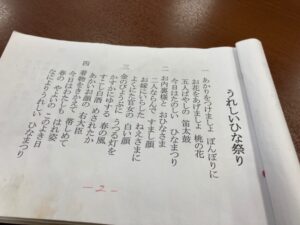 うれしいひな祭り
一 あかりをつけましょ ぼんぼりに
お花をあげましょ 桃の花
五人ばやしの 笛太鼓
今日はたのしい ひなまつり
二 お内裏様と おひなさま
二人ならんで すまし顔
お嫁にいらした ねえさまに
よくにた官女の 白い顔
三 金のびょうぶに うつる灯を
かすかにゆする 春の風
すこし白酒 めされたか
あかいお顔の 右大臣
四 着物をきかえて 帯しめて
今日はわたしも はれ姿
春の やよいの このよき日
なによりうれしい ひなまつり
－２－